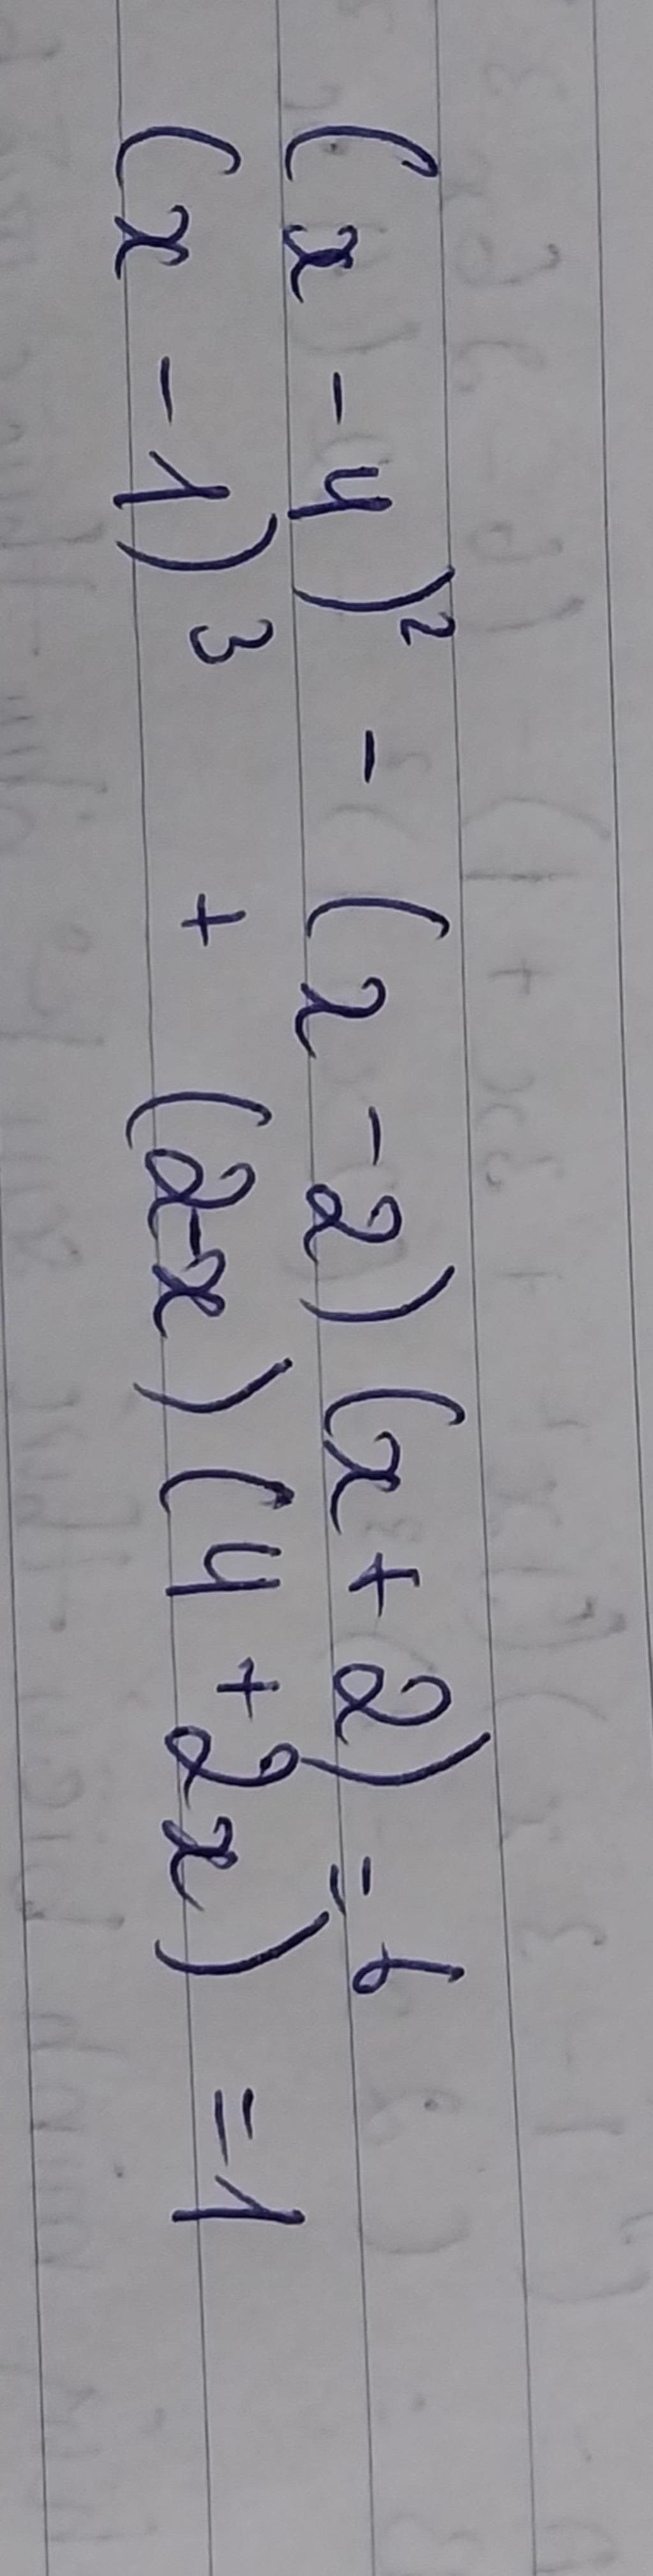 (x - 4)² - (x - 2)(x + 2) = 6
(x - 1)³ + (2-x)(4 + 2x) = 1